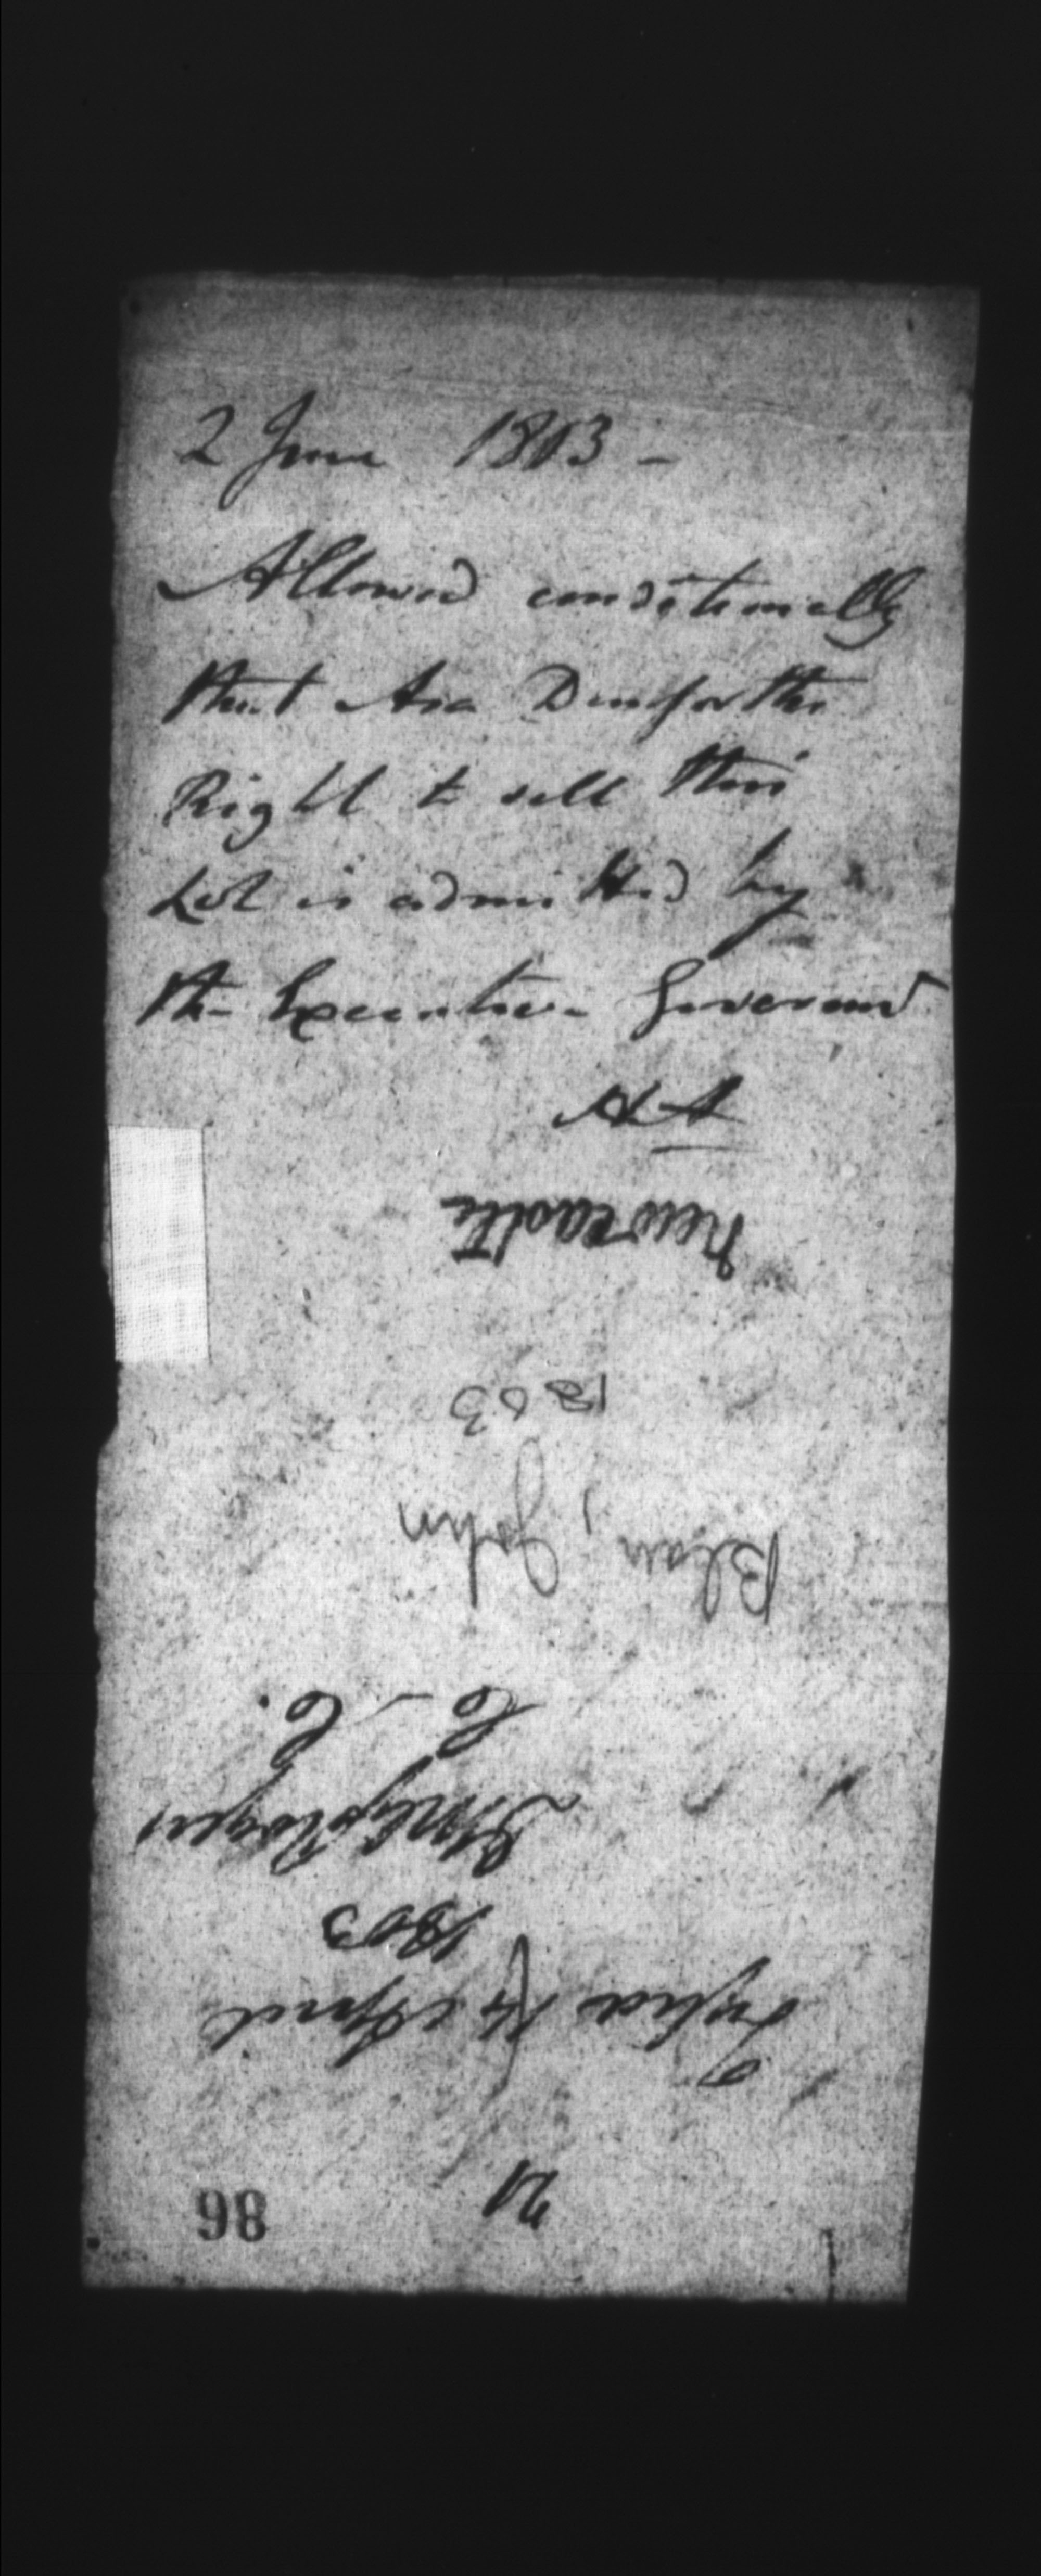 2 June 1803 -
Allowed conditionally
that Asa Danforths
Right to sell this
Lot is admitted by
the Executive Governmt
HA
Newcastle
1803
Blair, John
C. C.
D. McG. Rogers
1803
April
21
98